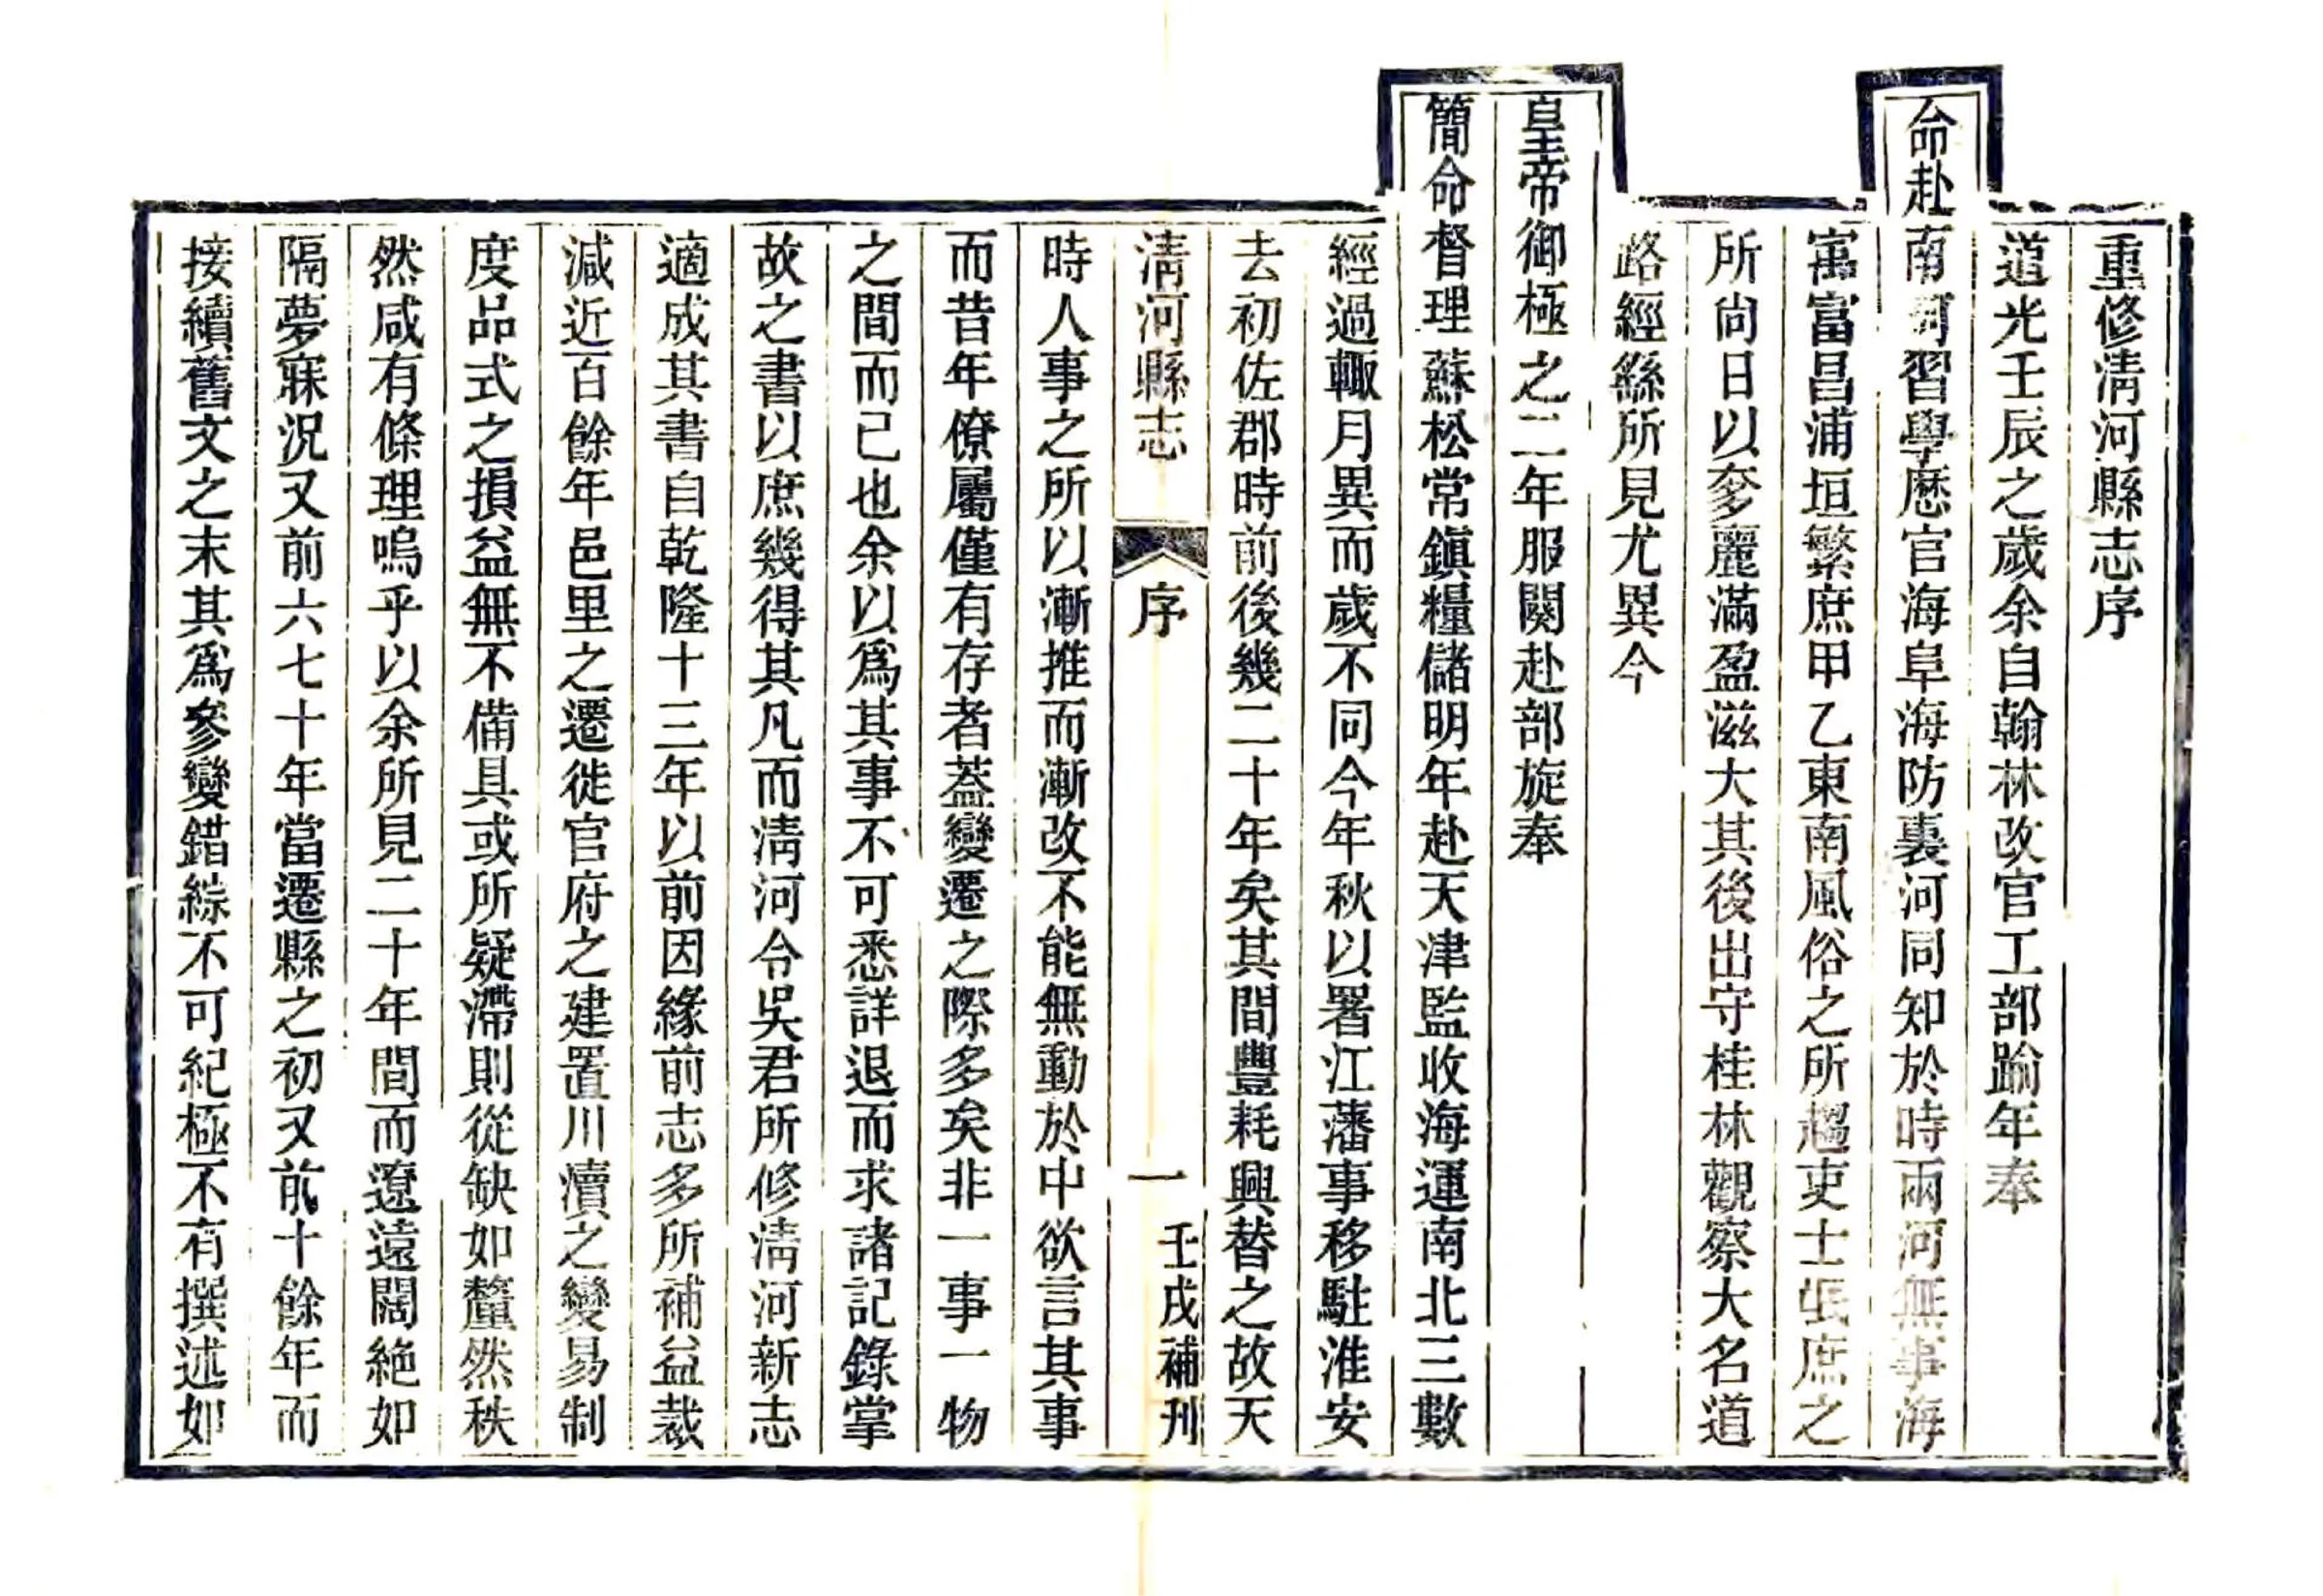 重修淸河縣志序
道光壬辰之歲余自翰林改官工部踰年奉
命赴南河習學歴官海阜海防裏河同知於時兩河無事海
㝢富昌浦垣繁庶甲乙東南風俗之所趨吏士張庶之
所尙日以奓麗滿盈滋大其後出守桂林觀察大名道
路經繇所見尤異今
皇帝御極之二年服闋赴部旋奉
簡命督理蘇松常鎭糧儲明年赴天津監收海運南北三數
經過輙月異而歲不同今年秋以署江藩事移駐淮安
去初佐郡時前後幾二十年矣其間豐耗興替之故天
淸河縣志 序 一 壬戌補刊
時人事之所以漸推而漸改不能無動於中欲言其事
而昔年僚屬僅有存者葢變遷之際多矣非一事一物
之間而已也余以爲其事不可悉詳退而求諸記錄掌
故之書以庶幾得其凡而淸河令吳君所修淸河新志
適成其書自乾隆十三年以前因緣前志多所補益裁
減近百餘年邑里之遷徙官府之建置川瀆之變易制
度品式之損益無不備具或所疑滯則從缺如釐然秩
然咸有條理嗚乎以余所見二十年間而遼遠闊絶如
隔夢寐況又前六七十年當遷縣之初又前十餘年而
接續舊文之末其爲參變錯綜不可紀極不有撰述如